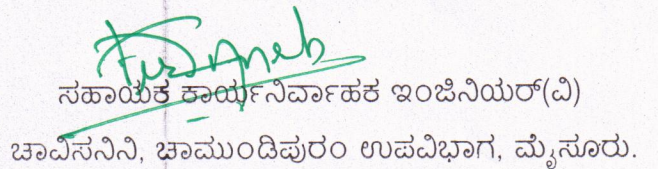 ಸಹಾಯಕ ಕಾರ್ಯನಿರ್ವಾಹಕ ಇಂಜಿನಿಯರ್(ವಿ)
ಚಾವಿಸನಿನಿ, ಚಾಮುಂಡಿಪುರಂ ಉಪವಿಭಾಗ, ಮೈಸೂರು.